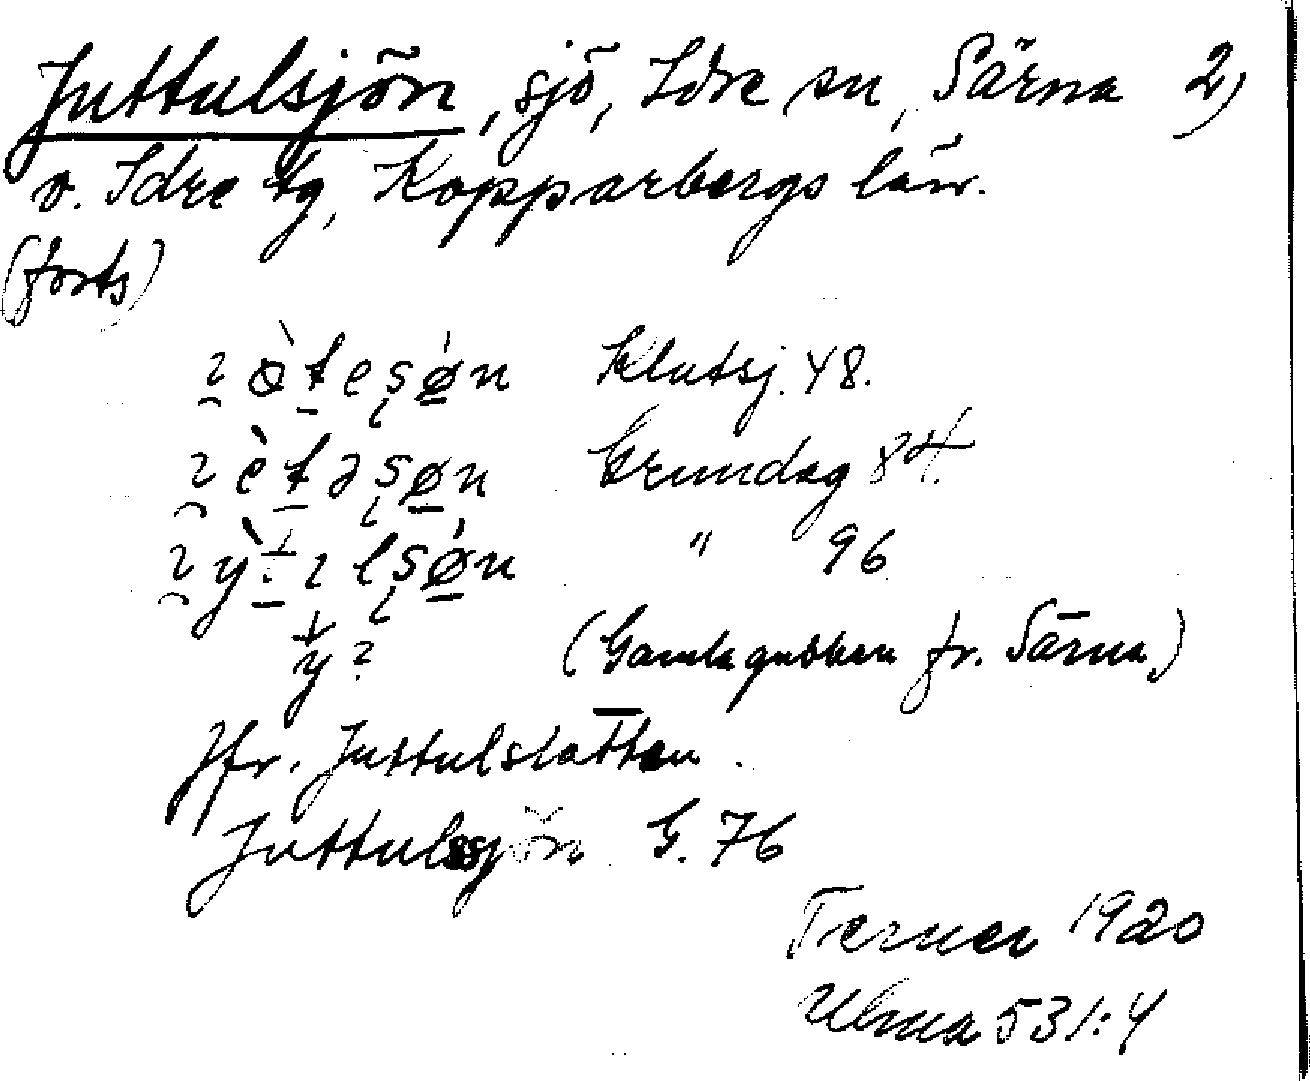 Juttulsjön, sjö, Idre sn, Särna 2)
v. Idre tg, Kopparbergs län.
(forts)
Klutsj. 48.
Grundag 84.
" 96
y? (Gamla gubben fr. Särna)
Jfr. Juttulslätten.
Juttulssjön G. 76
Terner 1920
Ulma 531:4